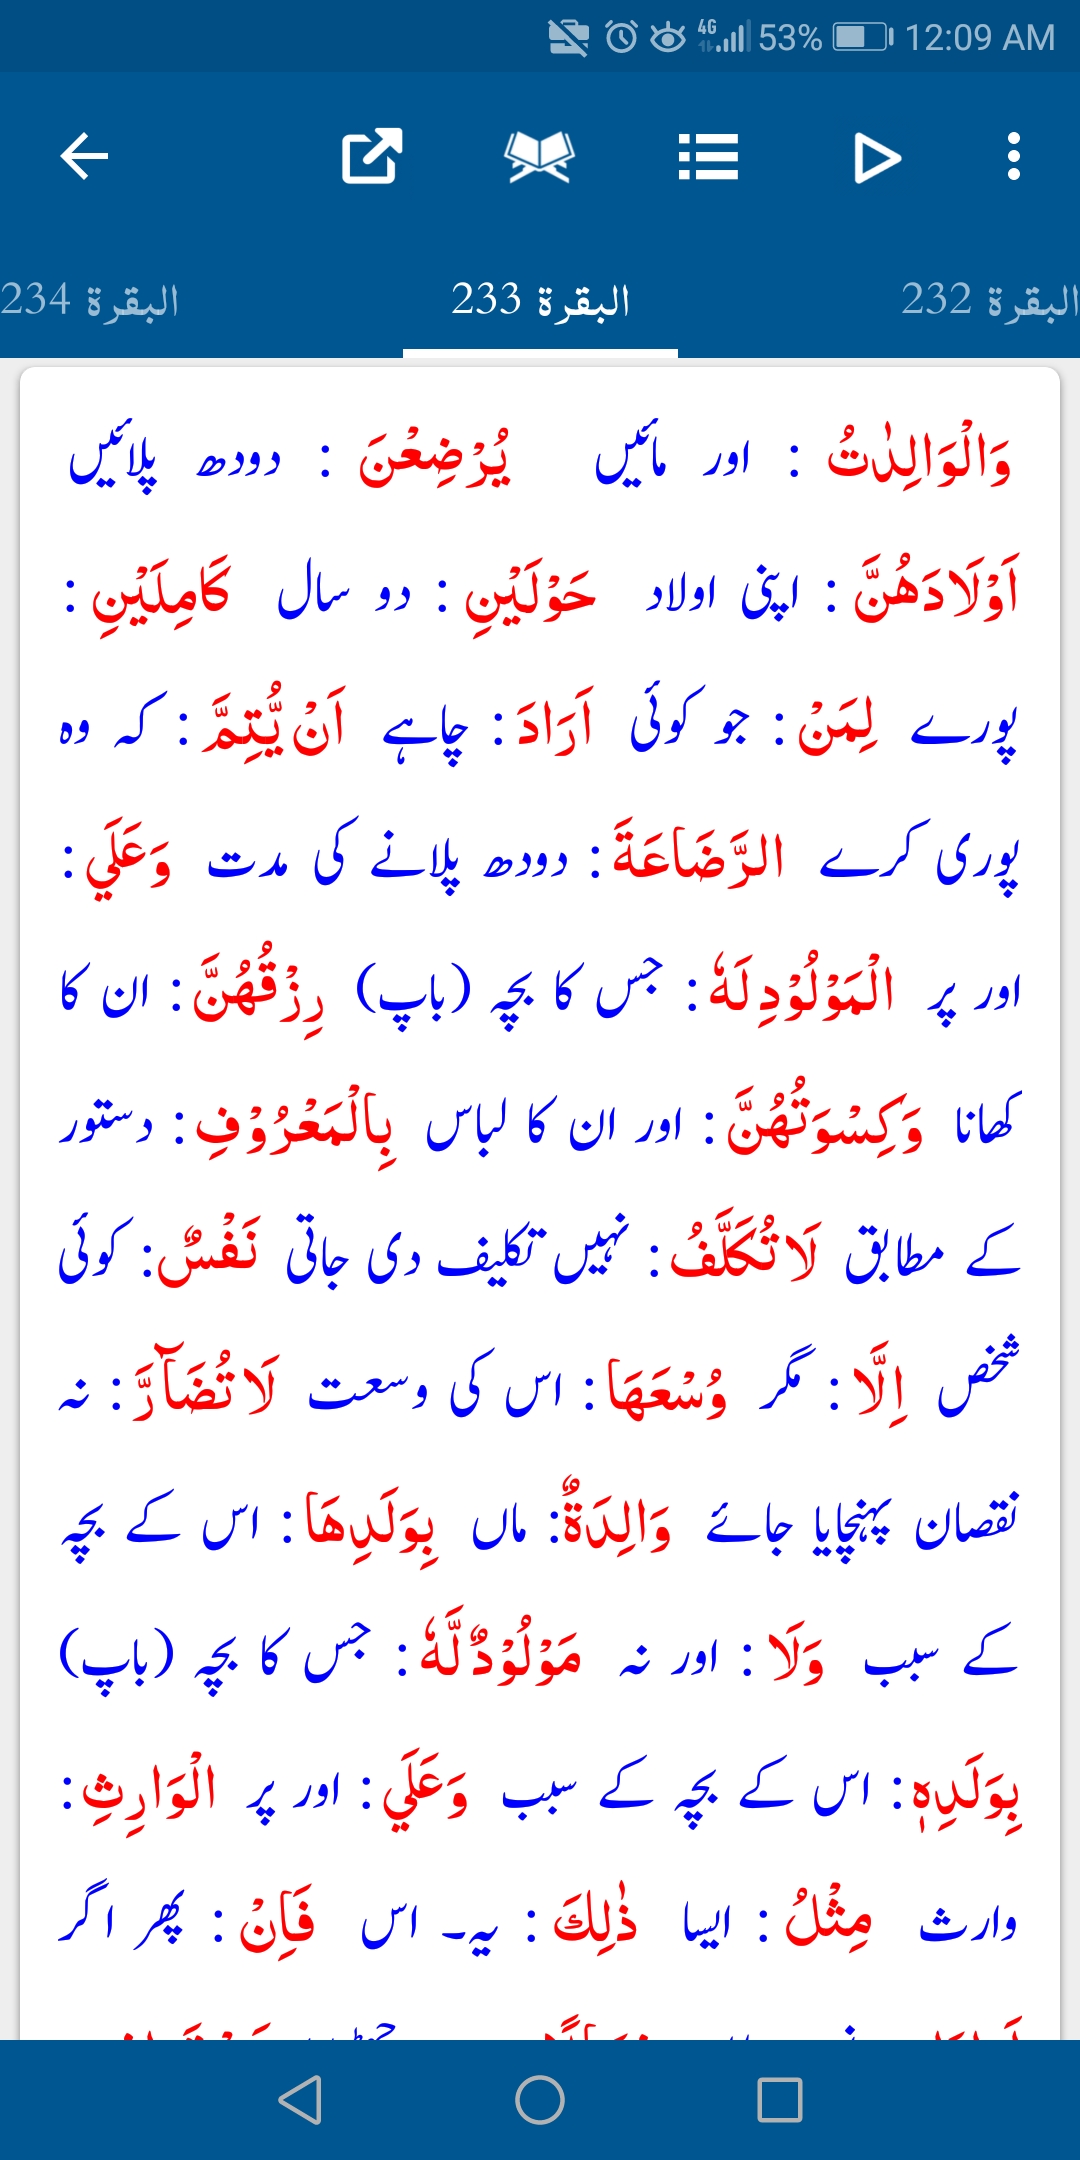 53% 12:09 AM
4G
البقرة 232 البقرة 233 البقرة 234
وَالْوَالِدٰتُ : اور مائیں يُرْضِعْنَ : دودھ پلائیں
اَوْلَادَھُنَّ : اپنی اولاد حَوْلَيْنِ : دو سال كَامِلَيْنِ :
پورے لِمَنْ : جو کوئی اَرَادَ : چاہے اَنْ يُّتِمَّ : کہ وہ
پوری کرے الرَّضَاعَةَ : دودھ پلانے کی مدت وَعَلَي :
اور پر الْمَوْلُوْدِ لَهٗ : جس کا بچہ (باپ) رِزْقُهُنَّ : ان کا
کھانا وَكِسْوَتُهُنَّ : اور ان کا لباس بِالْمَعْرُوْفِ : دستور
کے مطابق لَا تُكَلَّفُ : نہیں تکلیف دی جاتی نَفْسٌ : کوئی
شخص اِلَّا : مگر وُسْعَهَا : اس کی وسعت لَا تُضَآرَّ : نہ
نقصان پہنچایا جائے وَالِدَةٌ : ماں بِوَلَدِھَا : اس کے بچہ
کے سبب وَلَا : اور نہ مَوْلُوْدٌ لَّهٗ : جس کا بچہ (باپ)
بِوَلَدِهٖ : اس کے بچہ کے سبب وَعَلَي : اور پر الْوَارِثِ :
وارث مِثْلُ : ایسا ذٰلِكَ : یہ۔ اس فَاِنْ : پھر اگر